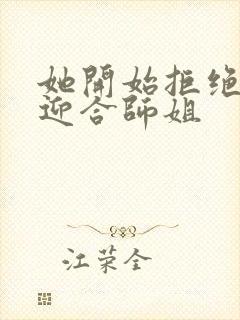 她開始拒绝
迎合師姐
江荣全